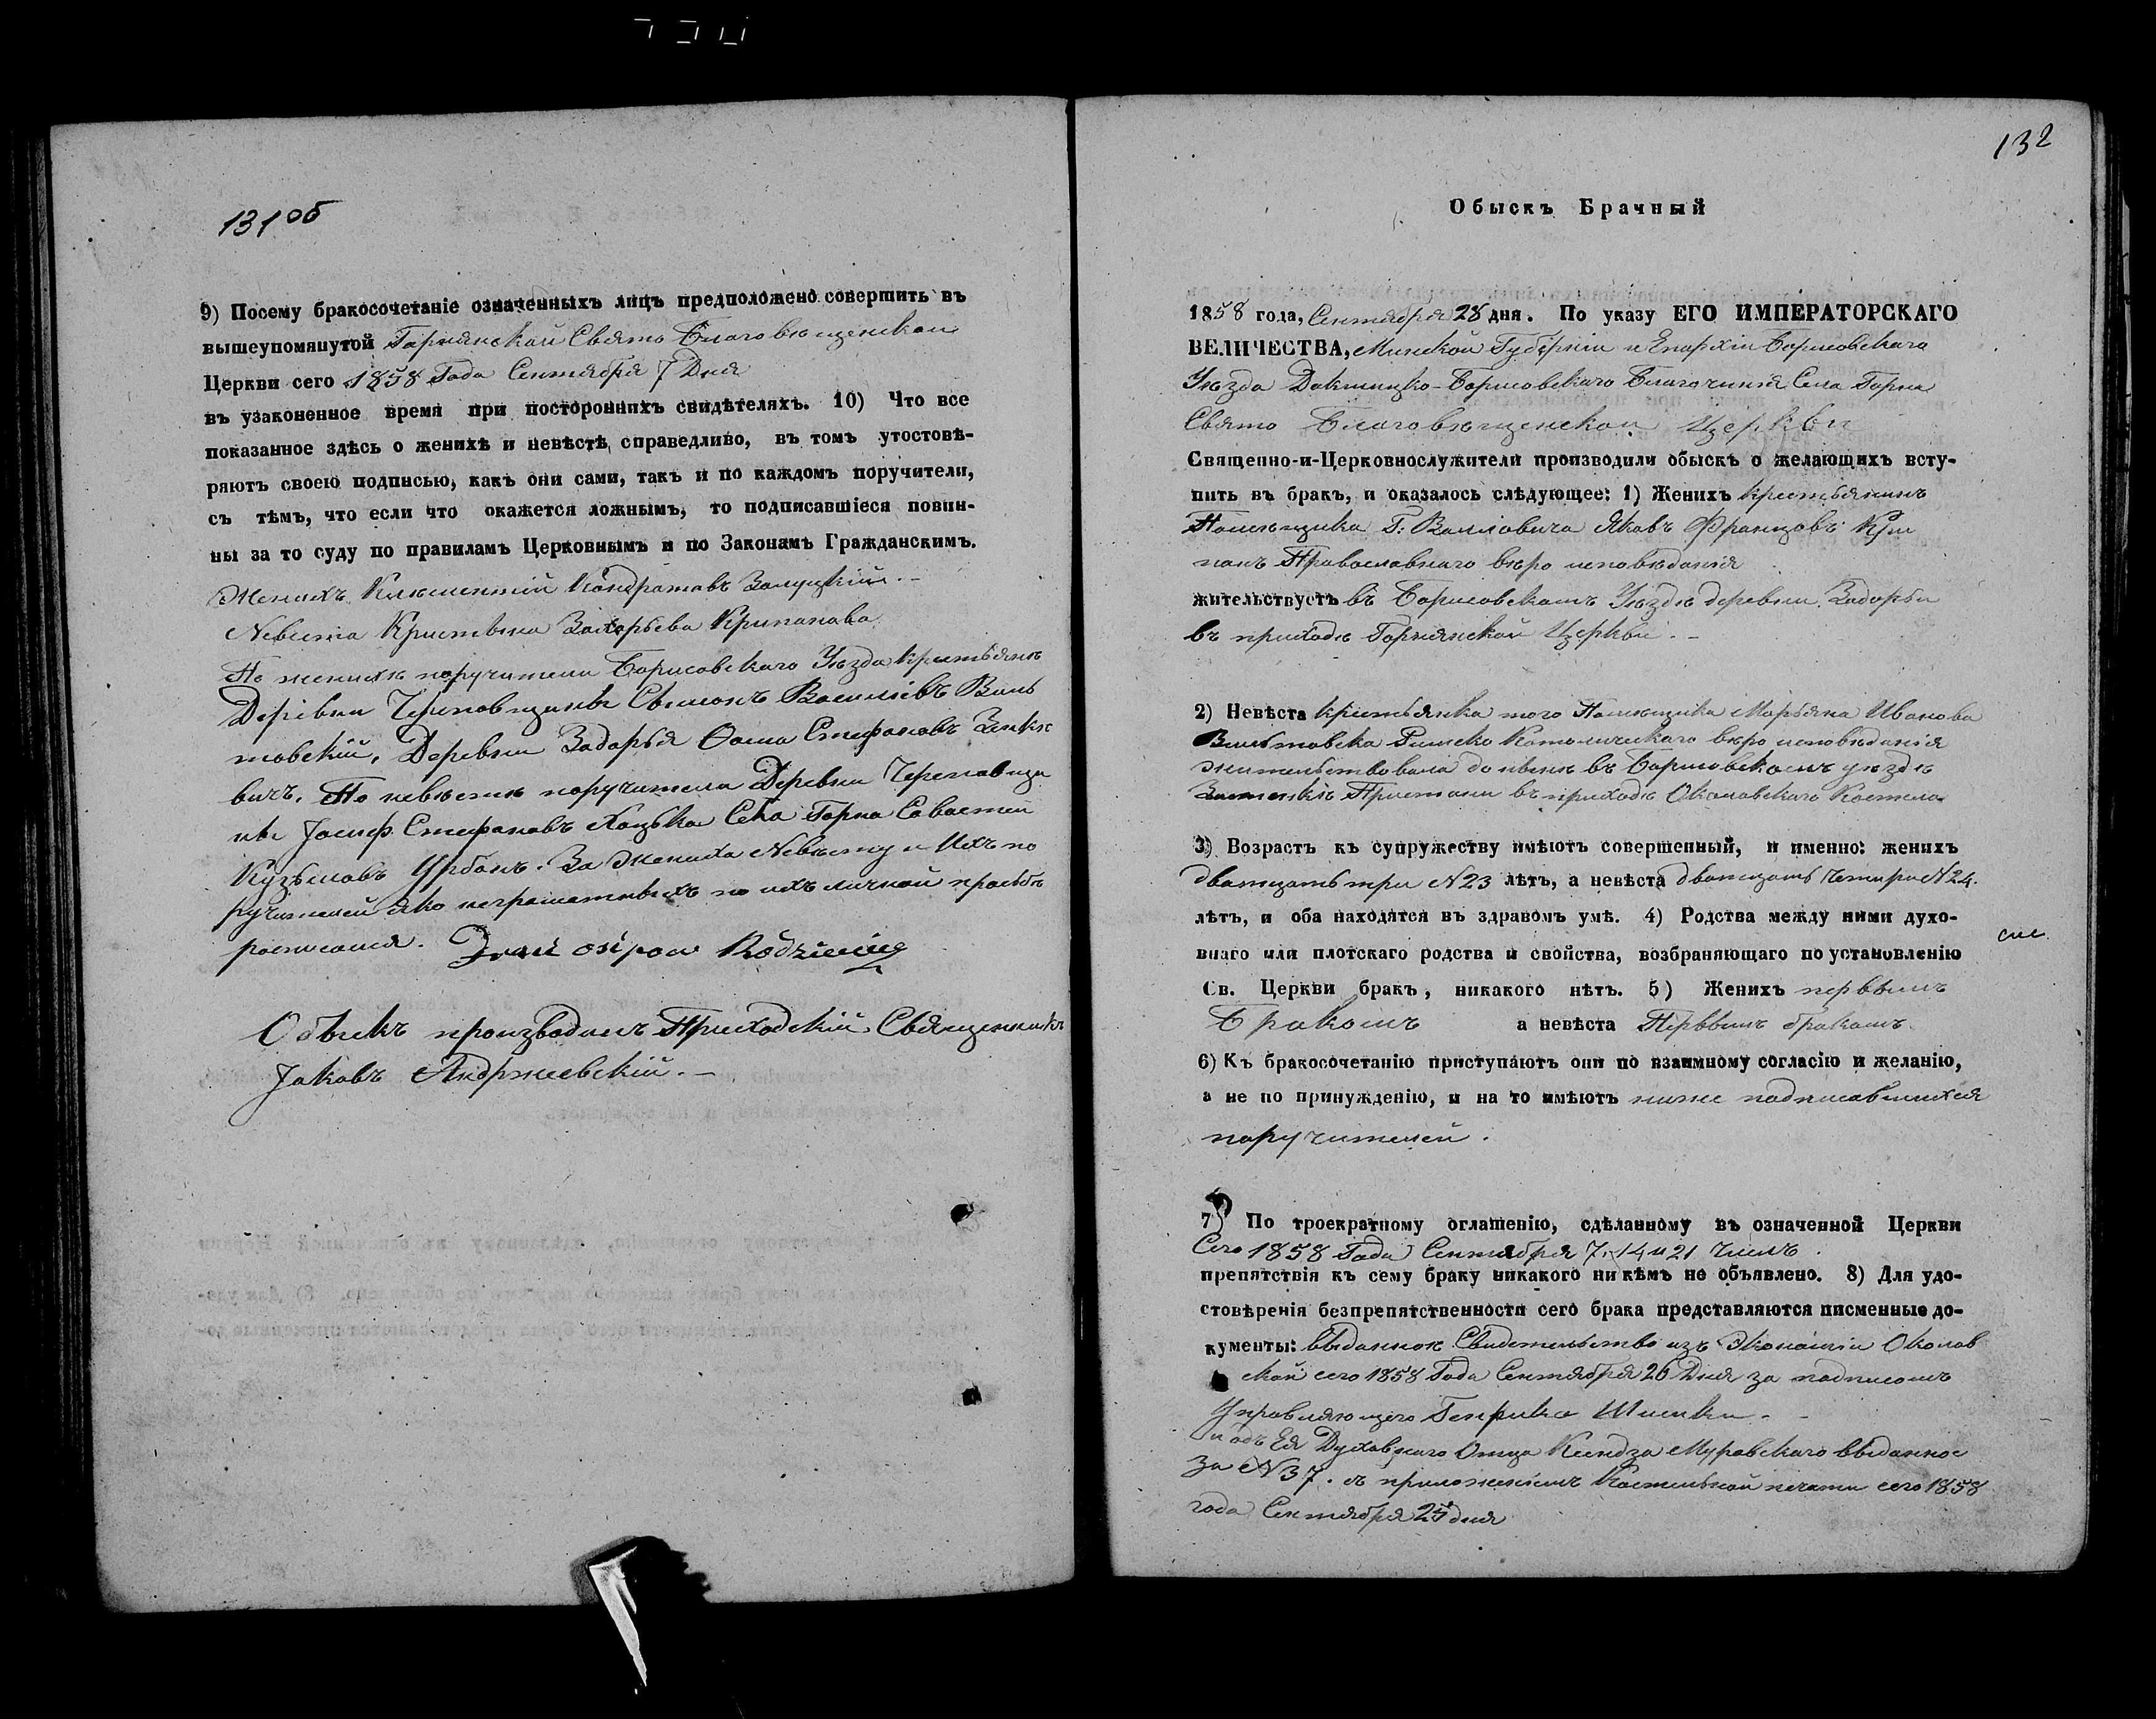 131 об
9) Посему бракосочетаніе означенныхъ лицъ предположено совершить въ
вышеупомянутой Горнянской Свято Благовѣщенской
Церкви сего 1858 Года Сентября 7 Дня
въ узаконенное время при постороннихъ свидѣтеляхъ. 10) Что все
показанное здѣсь о женихѣ и невѣстѣ справедливо, въ томъ утостовѣ-
ряютъ своею подписью, какъ они сами, такъ и по каждомъ поручители,
съ тѣмъ, что если что окажется ложнымъ, то подписавшіеся повин-
ны за то суду по правиламъ Церковнымъ и по Законамъ Гражданскимъ.
Женихъ Климентій Кондратовъ Залуцкій.-
Невѣста Кристина Захарьева
По женихѣ поручители Борисовскаго Уѣзда крестьяне
Деревни Симонъ Василіевъ Виль
товскій, Деревни Задорья Ѳома Стефановъ
вичъ. По невѣстѣ поручители Деревни
Іосиф Стефановъ Села Горна
Кузьмовъ Урбанъ. За Жениха Невѣсту и Ихъ по
ручителей яко неграматныхъ по ихъ личной прозьбѣ
росписался.
Обыскъ производилъ Приходскій Священникъ
Іаковъ Андржеевскій.-
132
Обыскъ Брачный
1858 года, Сентября 28 дня. По указу ЕГО ИМПЕРАТОРСКАГО
ВЕЛИЧЕСТВА, Минской Губерніи и Епархіи Борисовскаго
Уѣзда Докшицко-Борисовскаго Благочинія Села Горна
Свято Благовѣщенской Церкви
Священно-и-Церковнослужители производили обыскъ о желающихъ всту-
пить въ бракъ, и оказалось слѣдующее: 1) Женихъ крестьянинъ
Помѣщика Г. Валловича Яковъ Францовъ Кри
панъ Православнаго вѣро исповѣданія
жительствуетъ въ Борисовскомъ Уѣздѣ деревни Задорьи
въ приходѣ Горнянской Церкви.-
2) Невѣста крестьянка того Помѣщика Марьяна Иванова
Вильтовска Римско Католическаго вѣро исповѣданія
жительствовала донынѣ въ Борисовскомъ уѣздѣ
Застенкѣ Пристани въ приходѣ Околовскаго Костела
3) Возрастъ къ супружеству имѣютъ совершенный, и именно: женихъ
дватцать три N 23 лѣтъ, а невѣста дватцать четыри N 24.
лѣтъ, и оба находятся въ здравомъ умѣ. 4) Родства между ними духо-
внаго или плотскаго родства и свойства, возбраняющаго по установленію
Св. Церкви бракъ, никакого нѣтъ. 5) Женихъ первымъ
Бракомъ а невѣста Первымъ бракомъ.
6) Къ бракосочетанію приступаютъ они по взаимному согласію и желанію,
а не по принужденію, и на то имѣютъ ниже подписавшихся
поручителей.
7) По троекратному оглашенію, сдѣланному въ означенной Церкви
Сего 1858 Года Сентября 7, 14 и 21 числъ.
препятствія къ сему браку никакого никѣмъ не объявлено. 8) Для удо-
стовѣренія безпрепятственности сего брака представляются писменные до-
кументы: выданное Свидетельство изъ Экономіи Околов
ской сего 1858 Года Сентября 26 Дня за подписомъ
Управляющего Генрика Шишки.-
и одъ Ея Духовнаго Отца Ксендза Муровскаго выданное
за N 37. съ приложеніемъ Костельной печати сего 1858
года Сентября 25 дня